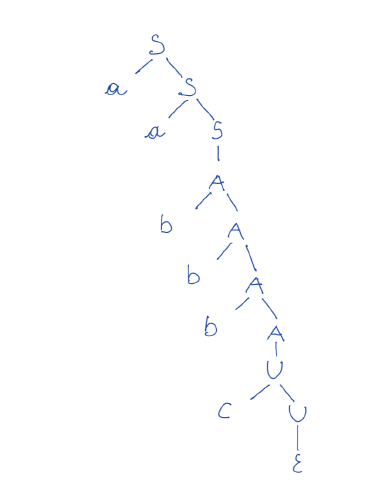 S
a S
a S
A
b A
b A
b A
U
c U
ε